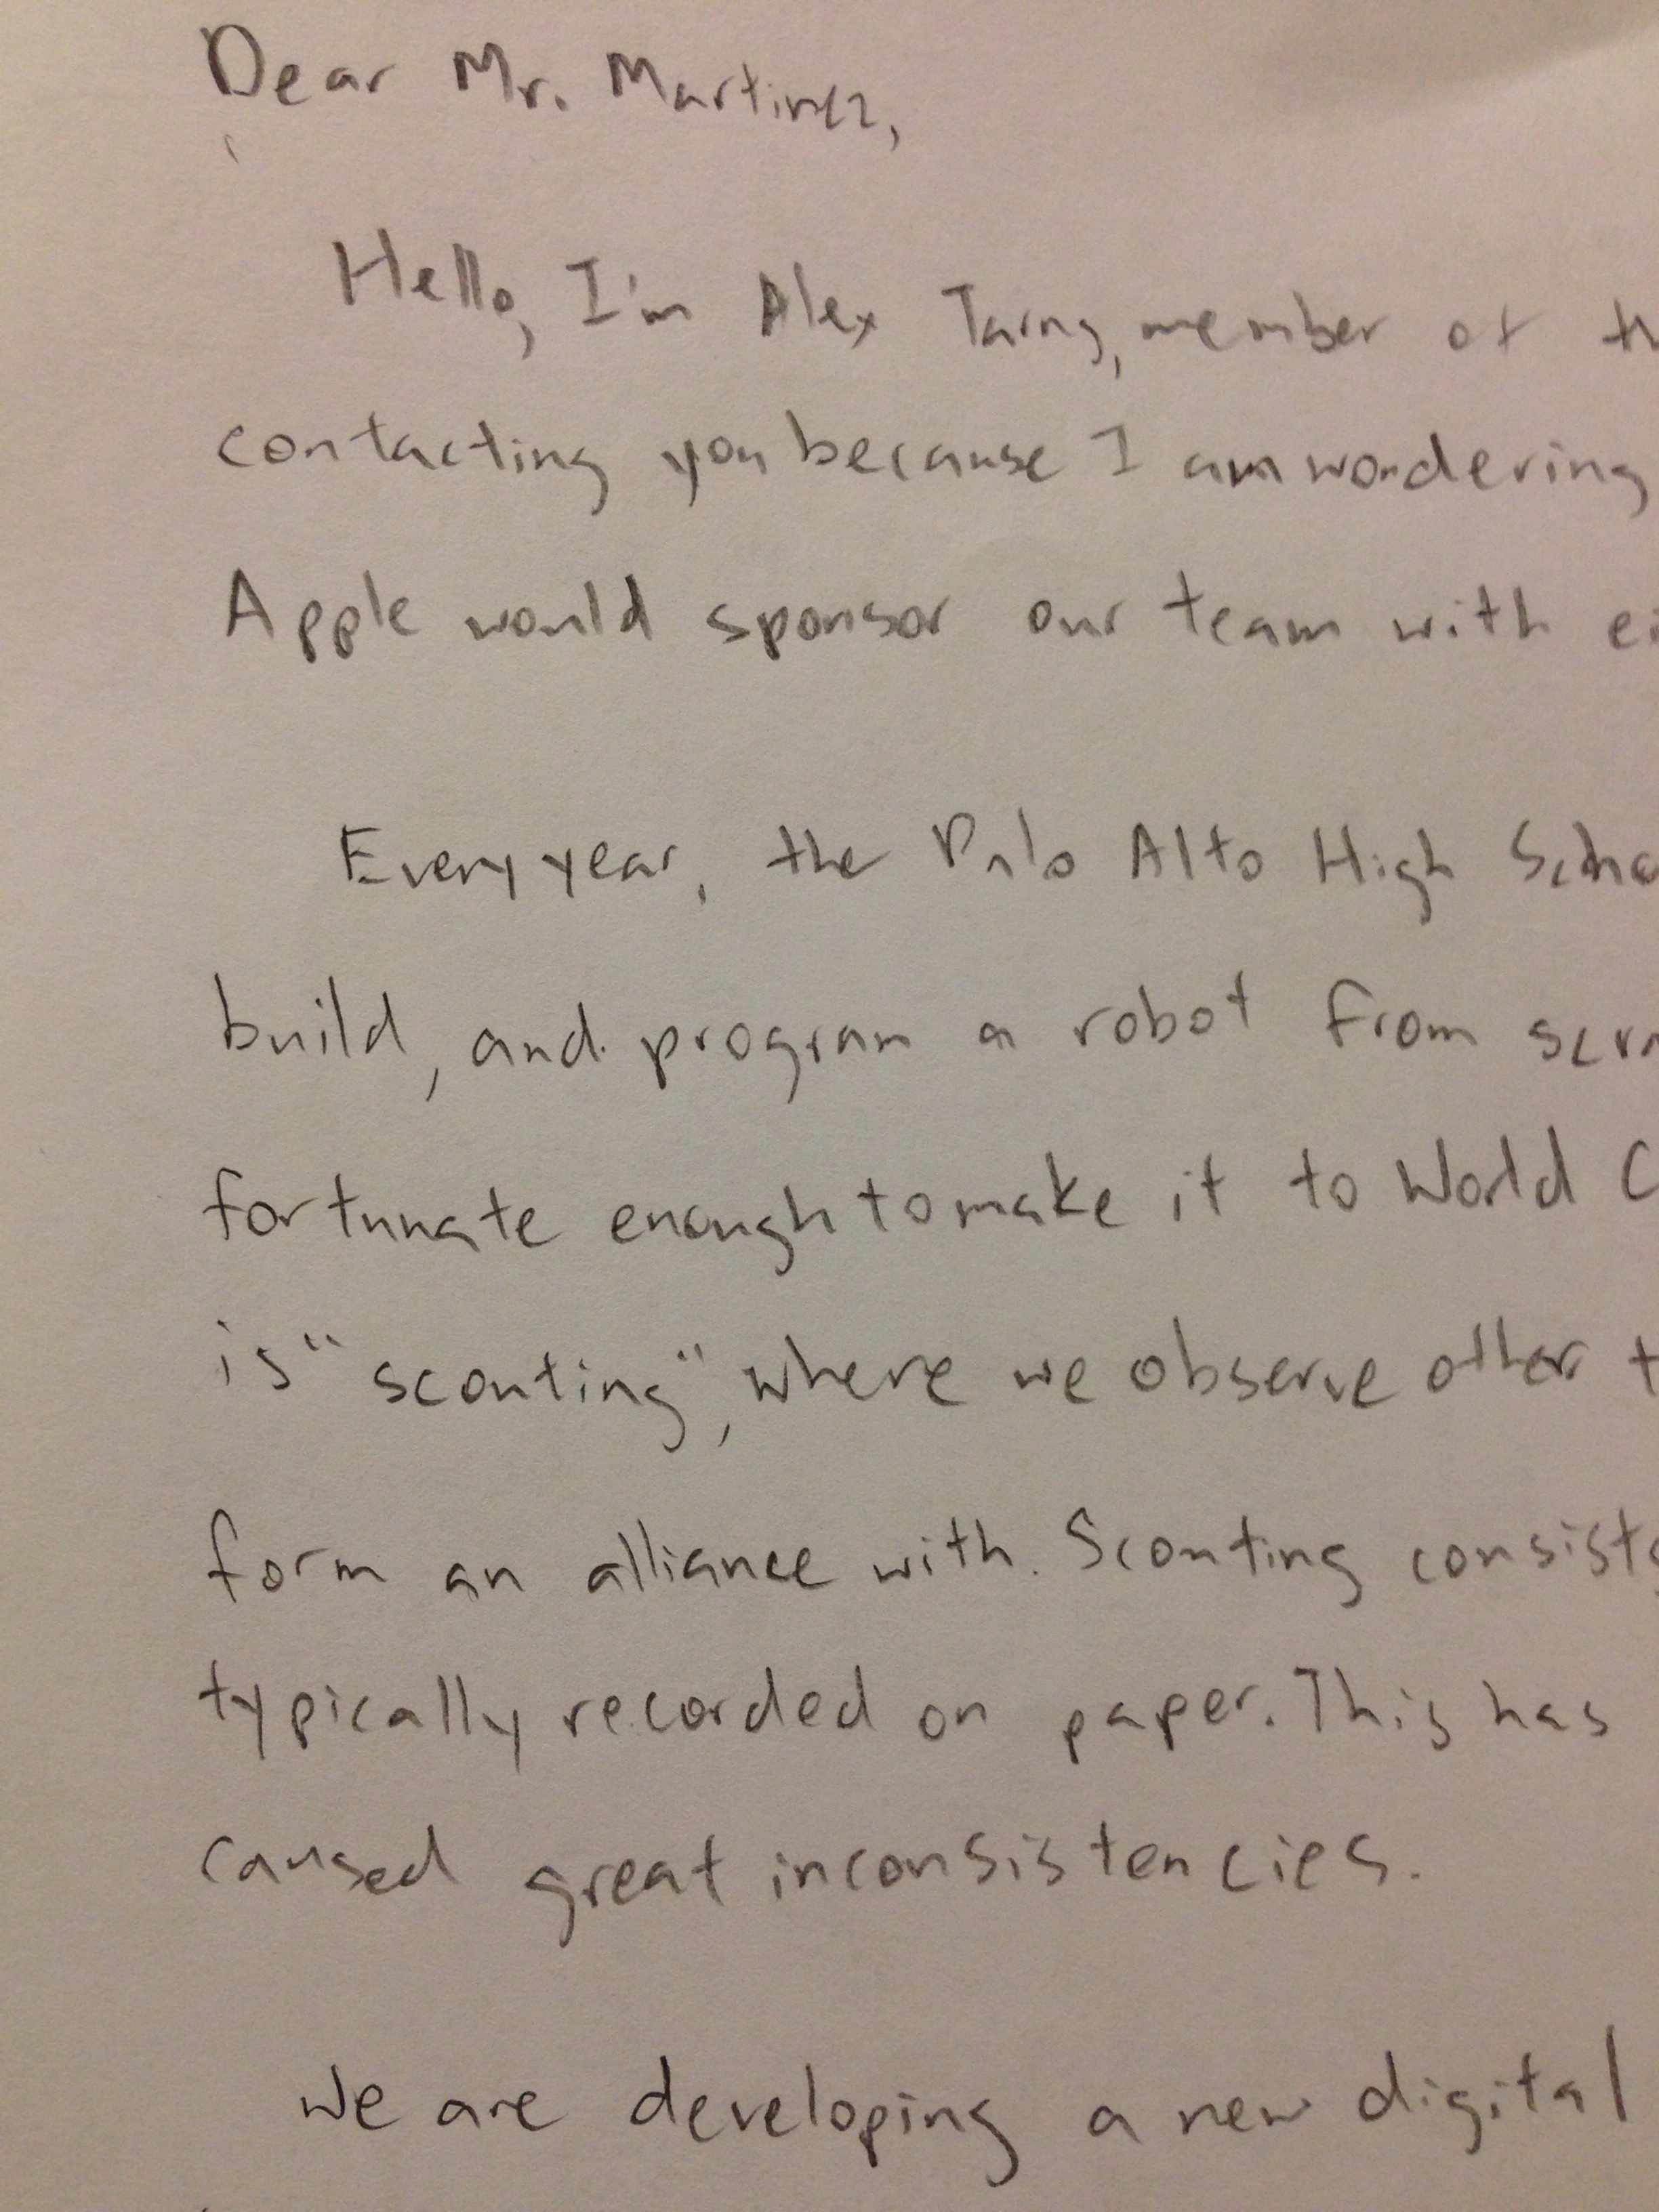 Dear Mr. Martinez,
Hello, I'm Alex Tarng, member of th
contacting you because I am wondering
Apple would sponsor our team with ei
Every year, the Palo Alto High Scho
build, and program a robot from scra
fortunate enough to make it to World C
is "scouting", where we observe other t
form an alliance with. Scouting consists
typically recorded on paper. This has
caused great inconsistencies.
We are developing a new digital